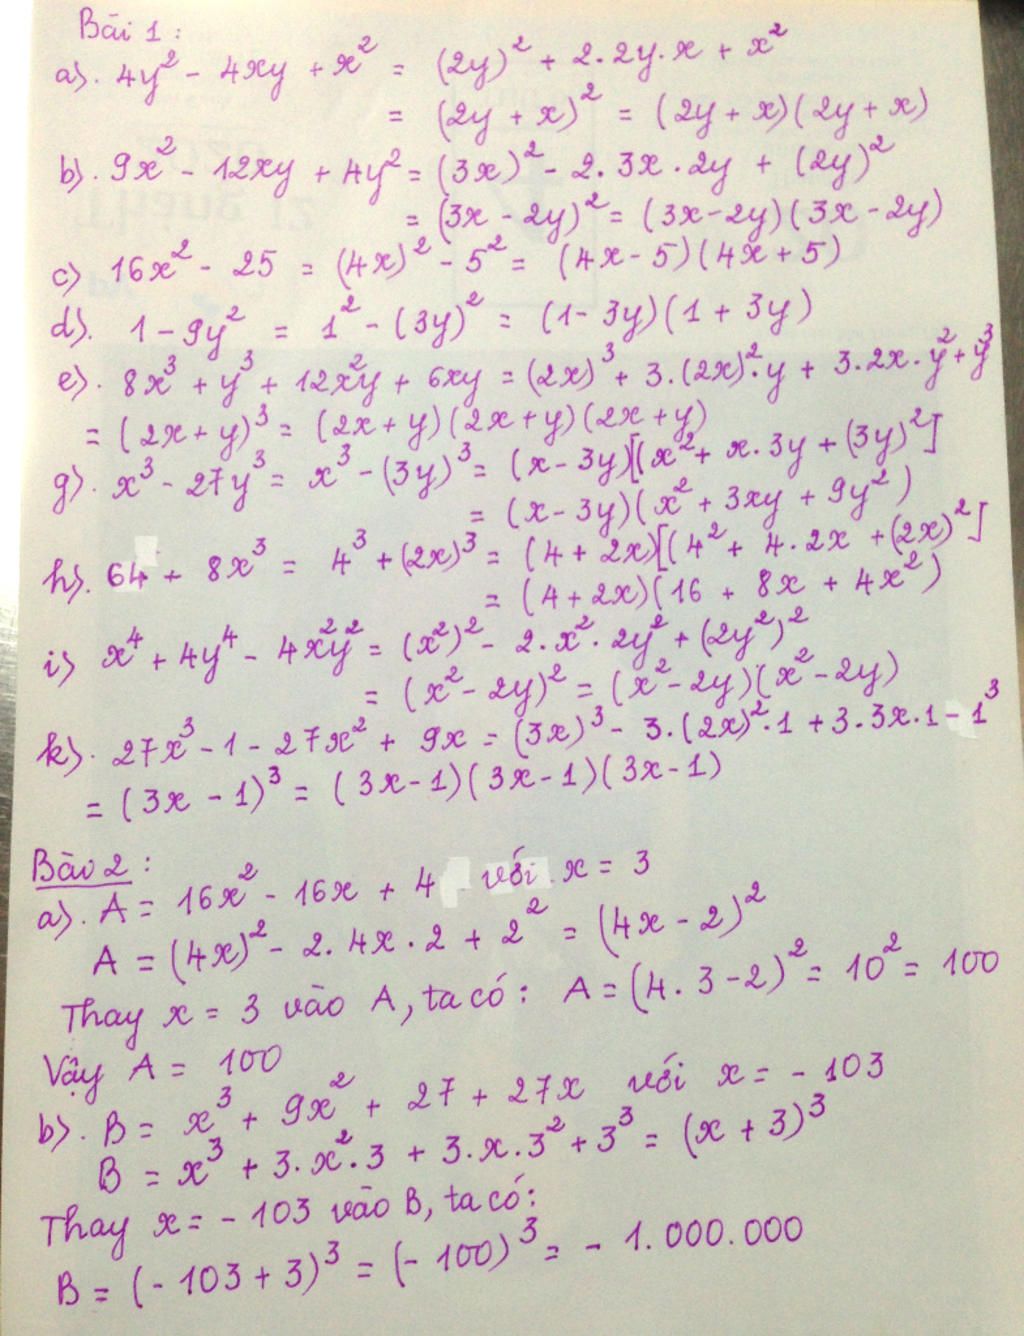 Bài 1 :
a). 4y² - 4xy + x² = (2y)² + 2.2y.x + x²
= (2y + x)² = (2y + x)(2y + x)
b). 9x² - 12xy + 4y² = (3x)² - 2.3x.2y + (2y)²
= (3x - 2y)² = (3x - 2y)(3x - 2y)
c) 16x² - 25 = (4x)² - 5² = (4x - 5)(4x + 5)
d). 1 - 9y² = 1² - (3y)² = (1 - 3y)(1 + 3y)
e). 8x³ + y³ + 12x²y + 6xy = (2x)³ + 3.(2x)².y + 3.2x.y² + y³
= (2x + y)³ = (2x + y)(2x + y)(2x + y)
g). x³ - 27y³ = x³ - (3y)³ = (x - 3y)[(x² + x.3y + (3y)²]
= (x - 3y)(x² + 3xy + 9y²)
h). 64 + 8x³ = 4³ + (2x)³ = (4 + 2x)[(4² + 4.2x + (2x)²]
= (4 + 2x)(16 + 8x + 4x²)
i) x⁴ + 4y⁴ - 4x²y² = (x²)² - 2.x².2y² + (2y²)²
= (x² - 2y)² = (x² - 2y)(x² - 2y)
k). 27x³ - 1 - 27x² + 9x = (3x)³ - 3.(2x)².1 + 3.3x.1 - 1³
= (3x - 1)³ = (3x - 1)(3x - 1)(3x - 1)
Bài 2 :
a). A = 16x² - 16x + 4 với x = 3
A = (4x)² - 2.4x.2 + 2² = (4x - 2)²
Thay x = 3 vào A, ta có : A = (4.3 - 2)² = 10² = 100
Vậy A = 100
b). B = x³ + 9x² + 27 + 27x với x = - 103
B = x³ + 3.x².3 + 3.x.3² + 3³ = (x + 3)³
Thay x = - 103 vào B, ta có :
B = (- 103 + 3)³ = (- 100)³ = - 1.000.000